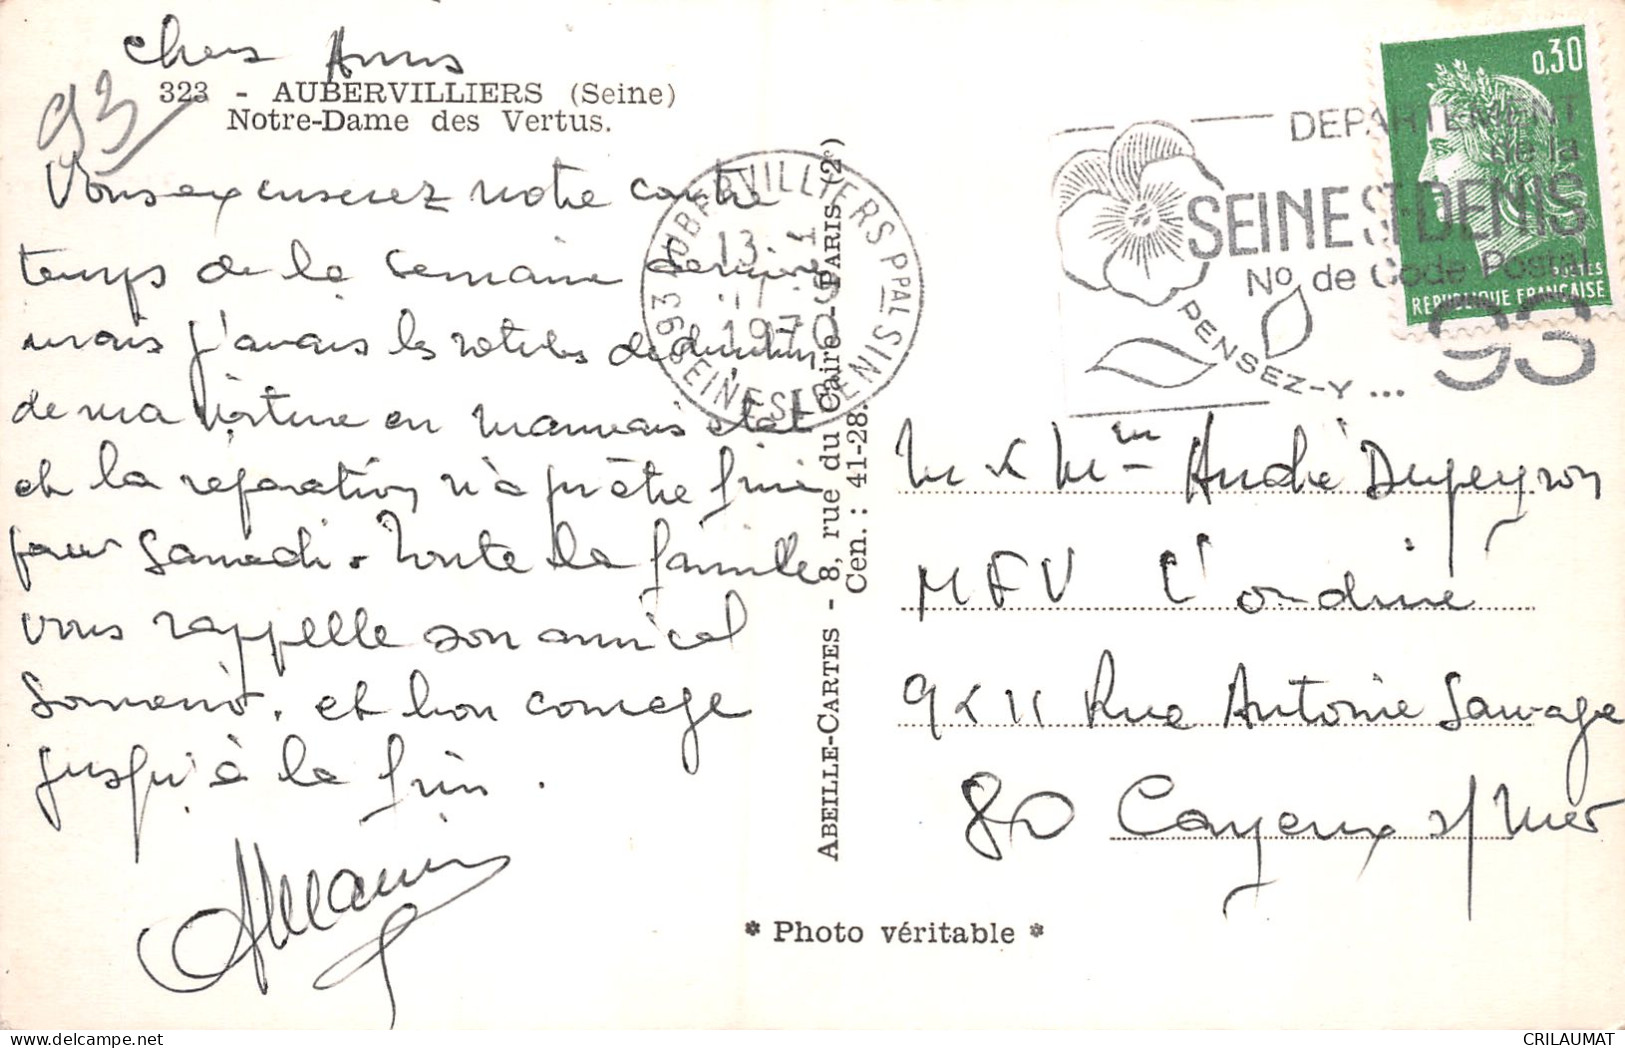 Chers Amis
93
323 - AUBERVILLIERS (Seine)
Notre-Dame des Vertus.
Vous excuserez notre contre
temps de la semaine dernière
mais j'avais les rotules de direction
de ma voiture en mauvais état
et la réparation n'a pû être finie
pour Samedi. Toute la famille
vous rappelle son amical
Souvenir. et bon courage
jusqu'à la fin.
ABEILLE-CARTES - 8, rue du Caire - PARIS (2e)
Cen. : 41-28.
93 AUBERVILLIERS PPAL SEINE-ST-DENIS
13-1
1970
DEPARTEMENT
de la
SEINE ST-DENIS
No de Code Postal
PENSEZ-Y ... 93
0,30
POSTES
REPUBLIQUE FRANÇAISE
M & Mme André Dupeyron
MFV L'ondine
9 & 11 Rue Antoine Sauvage
80 Cayeux s/Mer
* Photo véritable *
CRILAUMAT